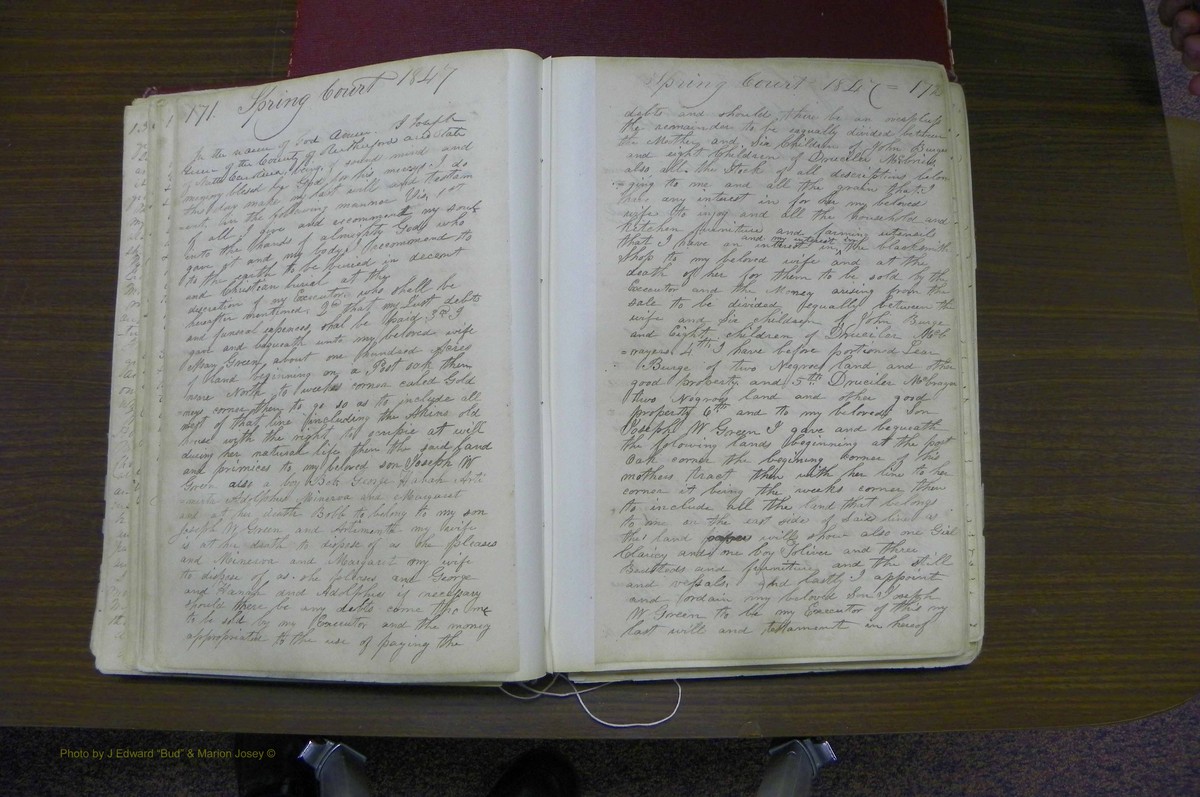 171. Spring Court 1847
In the name of God Amen I Joseph
Green of the County of Rutherford and state
of North Carolina being of sound mind and
memory blesd by God for his mercys I do
this day make my last will and testam
ent in the following manner Viz 1st
of all I give and recommend my soul
into the hands of almighty God who
gave it and my body I recommend to
to the earth to be buried in decent
and Christian burial at the
discretion of my Executor who shall be
hereafter mentioned 2nd that my Just debts
and funeral expences shal be paid 3rd I
give and bequeath unto my beloved wife
Mary Green about one hundred Acres
of land beginning on a Post oak then
North to weeks corner caled Gold
corner then to go so as to include all
west of that line including the Akins old
house with the right to ocupie at will
during her natural life then the said land
and primices to my beloved son Joseph W
Green also a boy Bob George Hanah Arti
Adolphus Minerva and Margaret
and at her death Bobb to belong to my son
Joseph W Green and my wife
is at her death to dispose of as she pleases
and Minerva and Margaret my wife
to dispose of as she pleases and George
and Hanah and Adolphus if necessary
should there be any debts come
to be sold by my Executor and the money
appropriated to the use of paying the
Spring Court 1847 = 172
debts and should there be an
the remainder to be equally divided between
the Mother and Six Children of John Burge
and eight Children of Druciler
also all the stock of all descriptions belon
=ging to me and all the grain that I
have any interest in for her my beloved
wife to injoy and all the household and
kitchen furniture and farming utensils
that I have an interest in and my interest in the blacksmith
Shop to my beloved wife and at the
death of her for them to be sold by the
Executor and the Money arising from the
sale to be divided equally between the
wife and six children of John Burge
and Eight children of Druciler McC
=rayers 4th I have before portioned
Burge of two Negroes land and other
good property and 5th Druciler McCrayer
two Negroes land and other good
property 6th and to my beloved Son
Joseph W Green I gave and bequeath
the folowing lands beginning at the post
Oak corner the begining corner of his
mothers tract then with her line to her
corner it being the weeks corner then
to include all the land that belongs
to me on the east side of said line as
the land will show also one Girl
Claricy and one boy Toliver and three
Bedsteds and furniture and the still
and vessals. And lastly I appoint
and ordain my beloved Son Joseph
W. Green to be my Executor of this my
last will and testament in hereof
Photo by J Edward "Bud" & Marion Josey ©